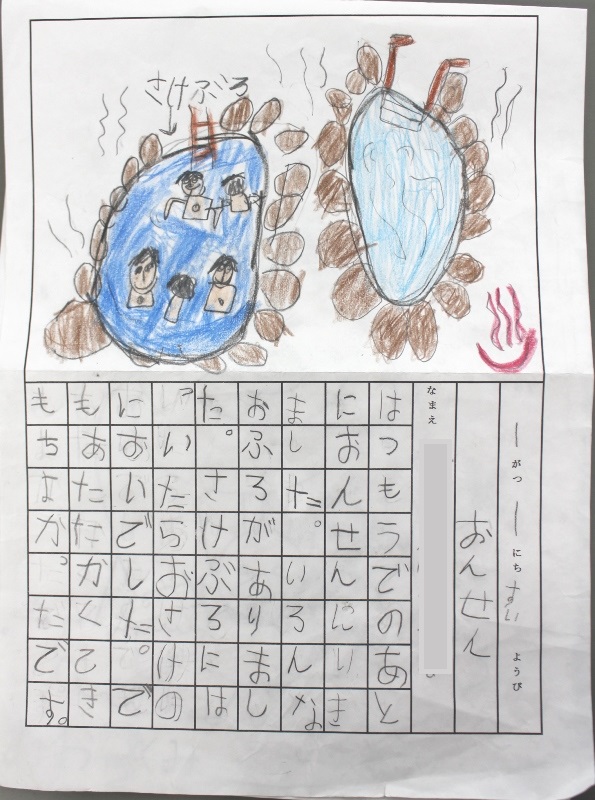 一がつ一にちすいようび
おんせん
なまえ
はつもうでのあと
におんせんにいき
ました。いろんな
おふろがありまし
た。さけぶろには
っいだらおさけの
においでした。で
もあたたかくてき
もちよかったです。
さけぶろ